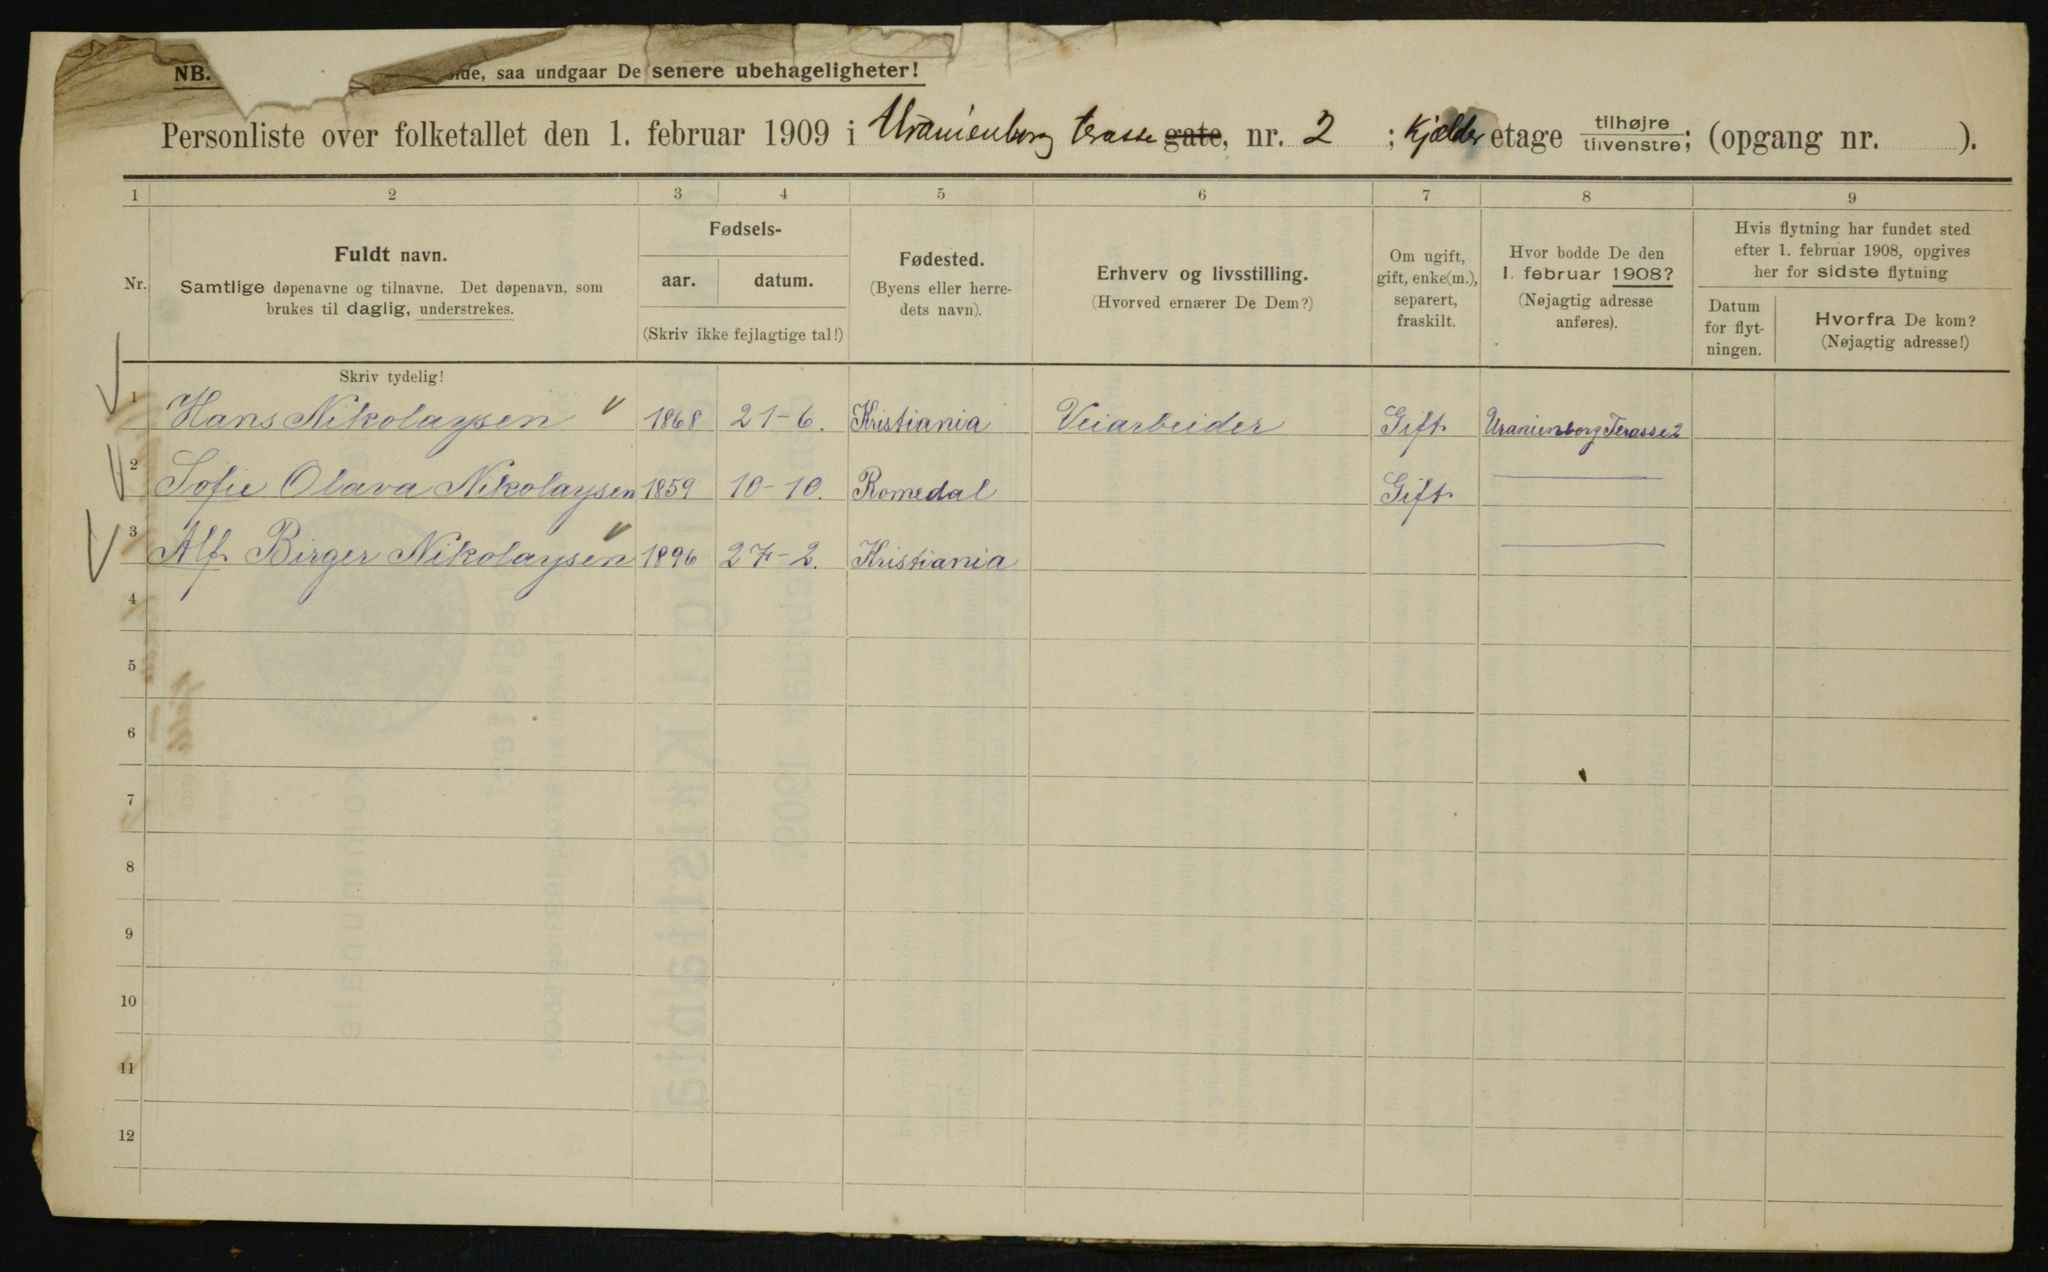 NB. side, saa undgaar De senere ubehageligheter!
Personliste over folketallet den 1. februar 1909 i Uranienborg terasse gate, nr. 2 ; Kjælder etage tilhøjre tilvenstre; (opgang nr. ).
1 2 3 4 5 6 7 8 9
Nr.
Fuldt navn.
Samtlige døpenavne og tilnavne. Det døpenavn, som
brukes til daglig, understrekes.
Fødsels-
aar. datum.
(Skriv ikke fejlagtige tal!)
Fødested.
(Byens eller herre-
dets navn).
Erhverv og livsstilling.
(Hvorved ernærer De Dem?)
Om ugift,
gift, enke(m.),
separert,
fraskilt.
Hvor bodde De den
1. februar 1908?
(Nøjagtig adresse
anføres).
Hvis flytning har fundet sted
efter 1. februar 1908, opgives
her for sidste flytning
Datum
for flyt-
ningen.
Hvorfra De kom?
(Nøjagtig adresse!)
Skriv tydelig!
1 Hans Nikolaysen 1868 21-6. Kristiania Veiarbeider Gift Uranienborg Terasse 2
2 Sofie Olava Nikolaysen 1859 10-10. Romedal Gift
3 Alf Birger Nikolaysen 1896 27-2. Kristiania
4
5
6
7
8
9
10
11
12